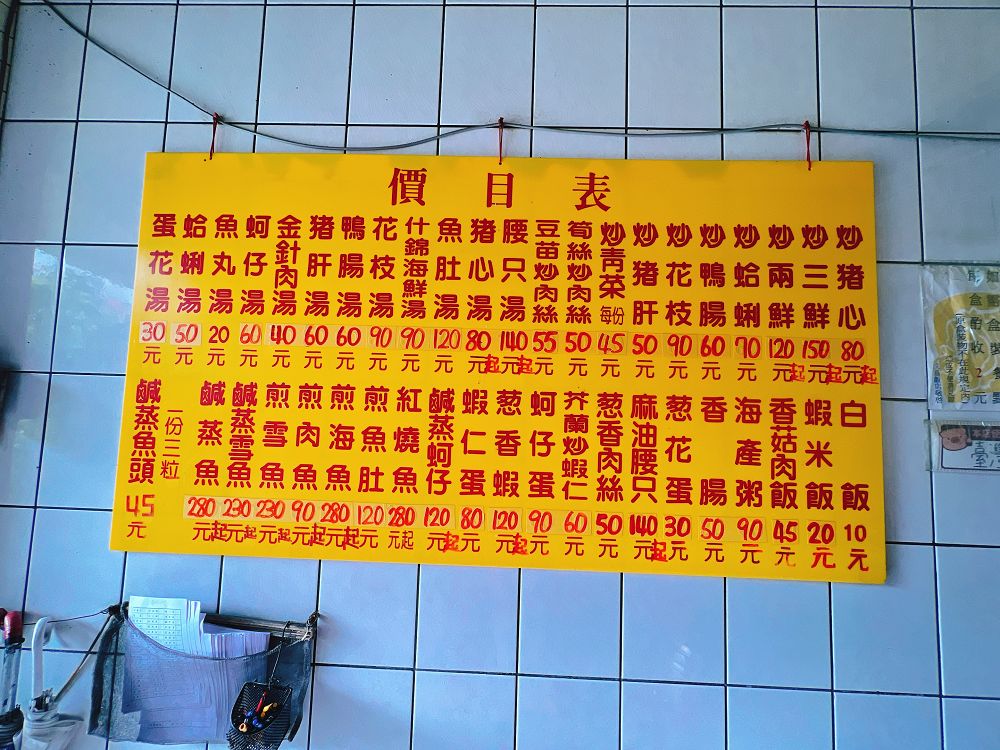 價目表
炒猪心 80元起
炒三鮮 150元起
炒兩鮮 120元起
炒蛤蜊 70元
炒鴨腸 60元
炒花枝 90元
炒猪肝 50元
炒青菜 每份 45元
筍絲炒肉絲 50元
豆苗炒肉絲 55元
腰只湯 140元起
猪心湯 80元起
魚肚湯 120元
什錦海鮮湯 90元
花枝湯 90元
鴨腸湯 60元
猪肝湯 60元
金針肉湯 40元
蚵仔湯 60元
魚丸湯 20元
蛤蜊湯 50元
蛋花湯 30元
白飯 10元
蝦米飯 20元
香菇肉飯 45元
海產粥 90元
香腸 50元
葱花蛋 30元
麻油腰只 140元起
葱香肉絲 50元
芥蘭炒蝦仁 60元
蚵仔蛋 90元
葱香蝦 120元起
蝦仁蛋 80元
鹹蒸蚵仔 120元起
紅燒魚 280元起
煎魚肚 120元
煎海魚 280元起
煎肉魚 90元起
煎雪魚 230元起
鹹蒸雪魚 230元起
鹹蒸魚 280元起
一份三粒
鹹蒸魚頭 45元